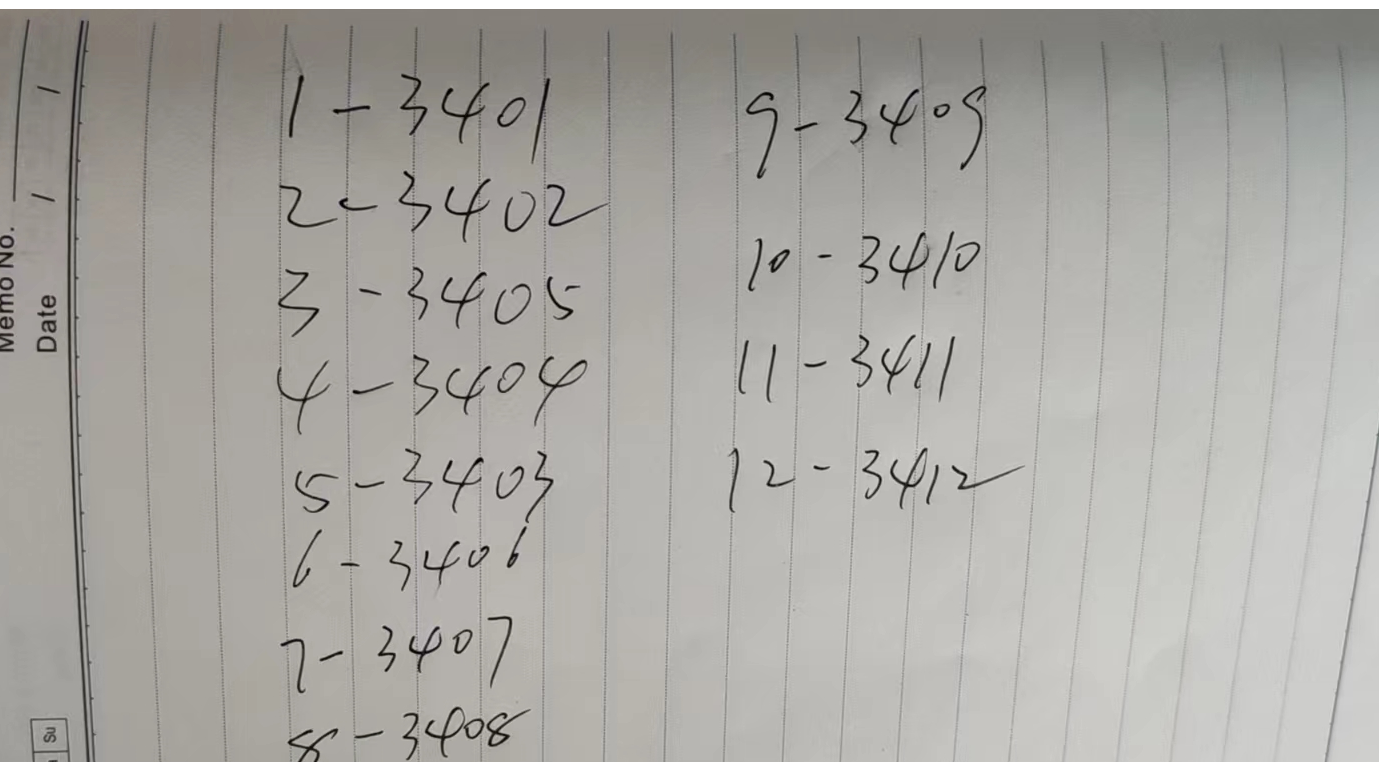 Memo No.
Date / /
Su
1-3401
2-3402
3-3405
4-3404
5-3403
6-3406
7-3407
8-3408
9-3409
10-3410
11-3411
12-3412